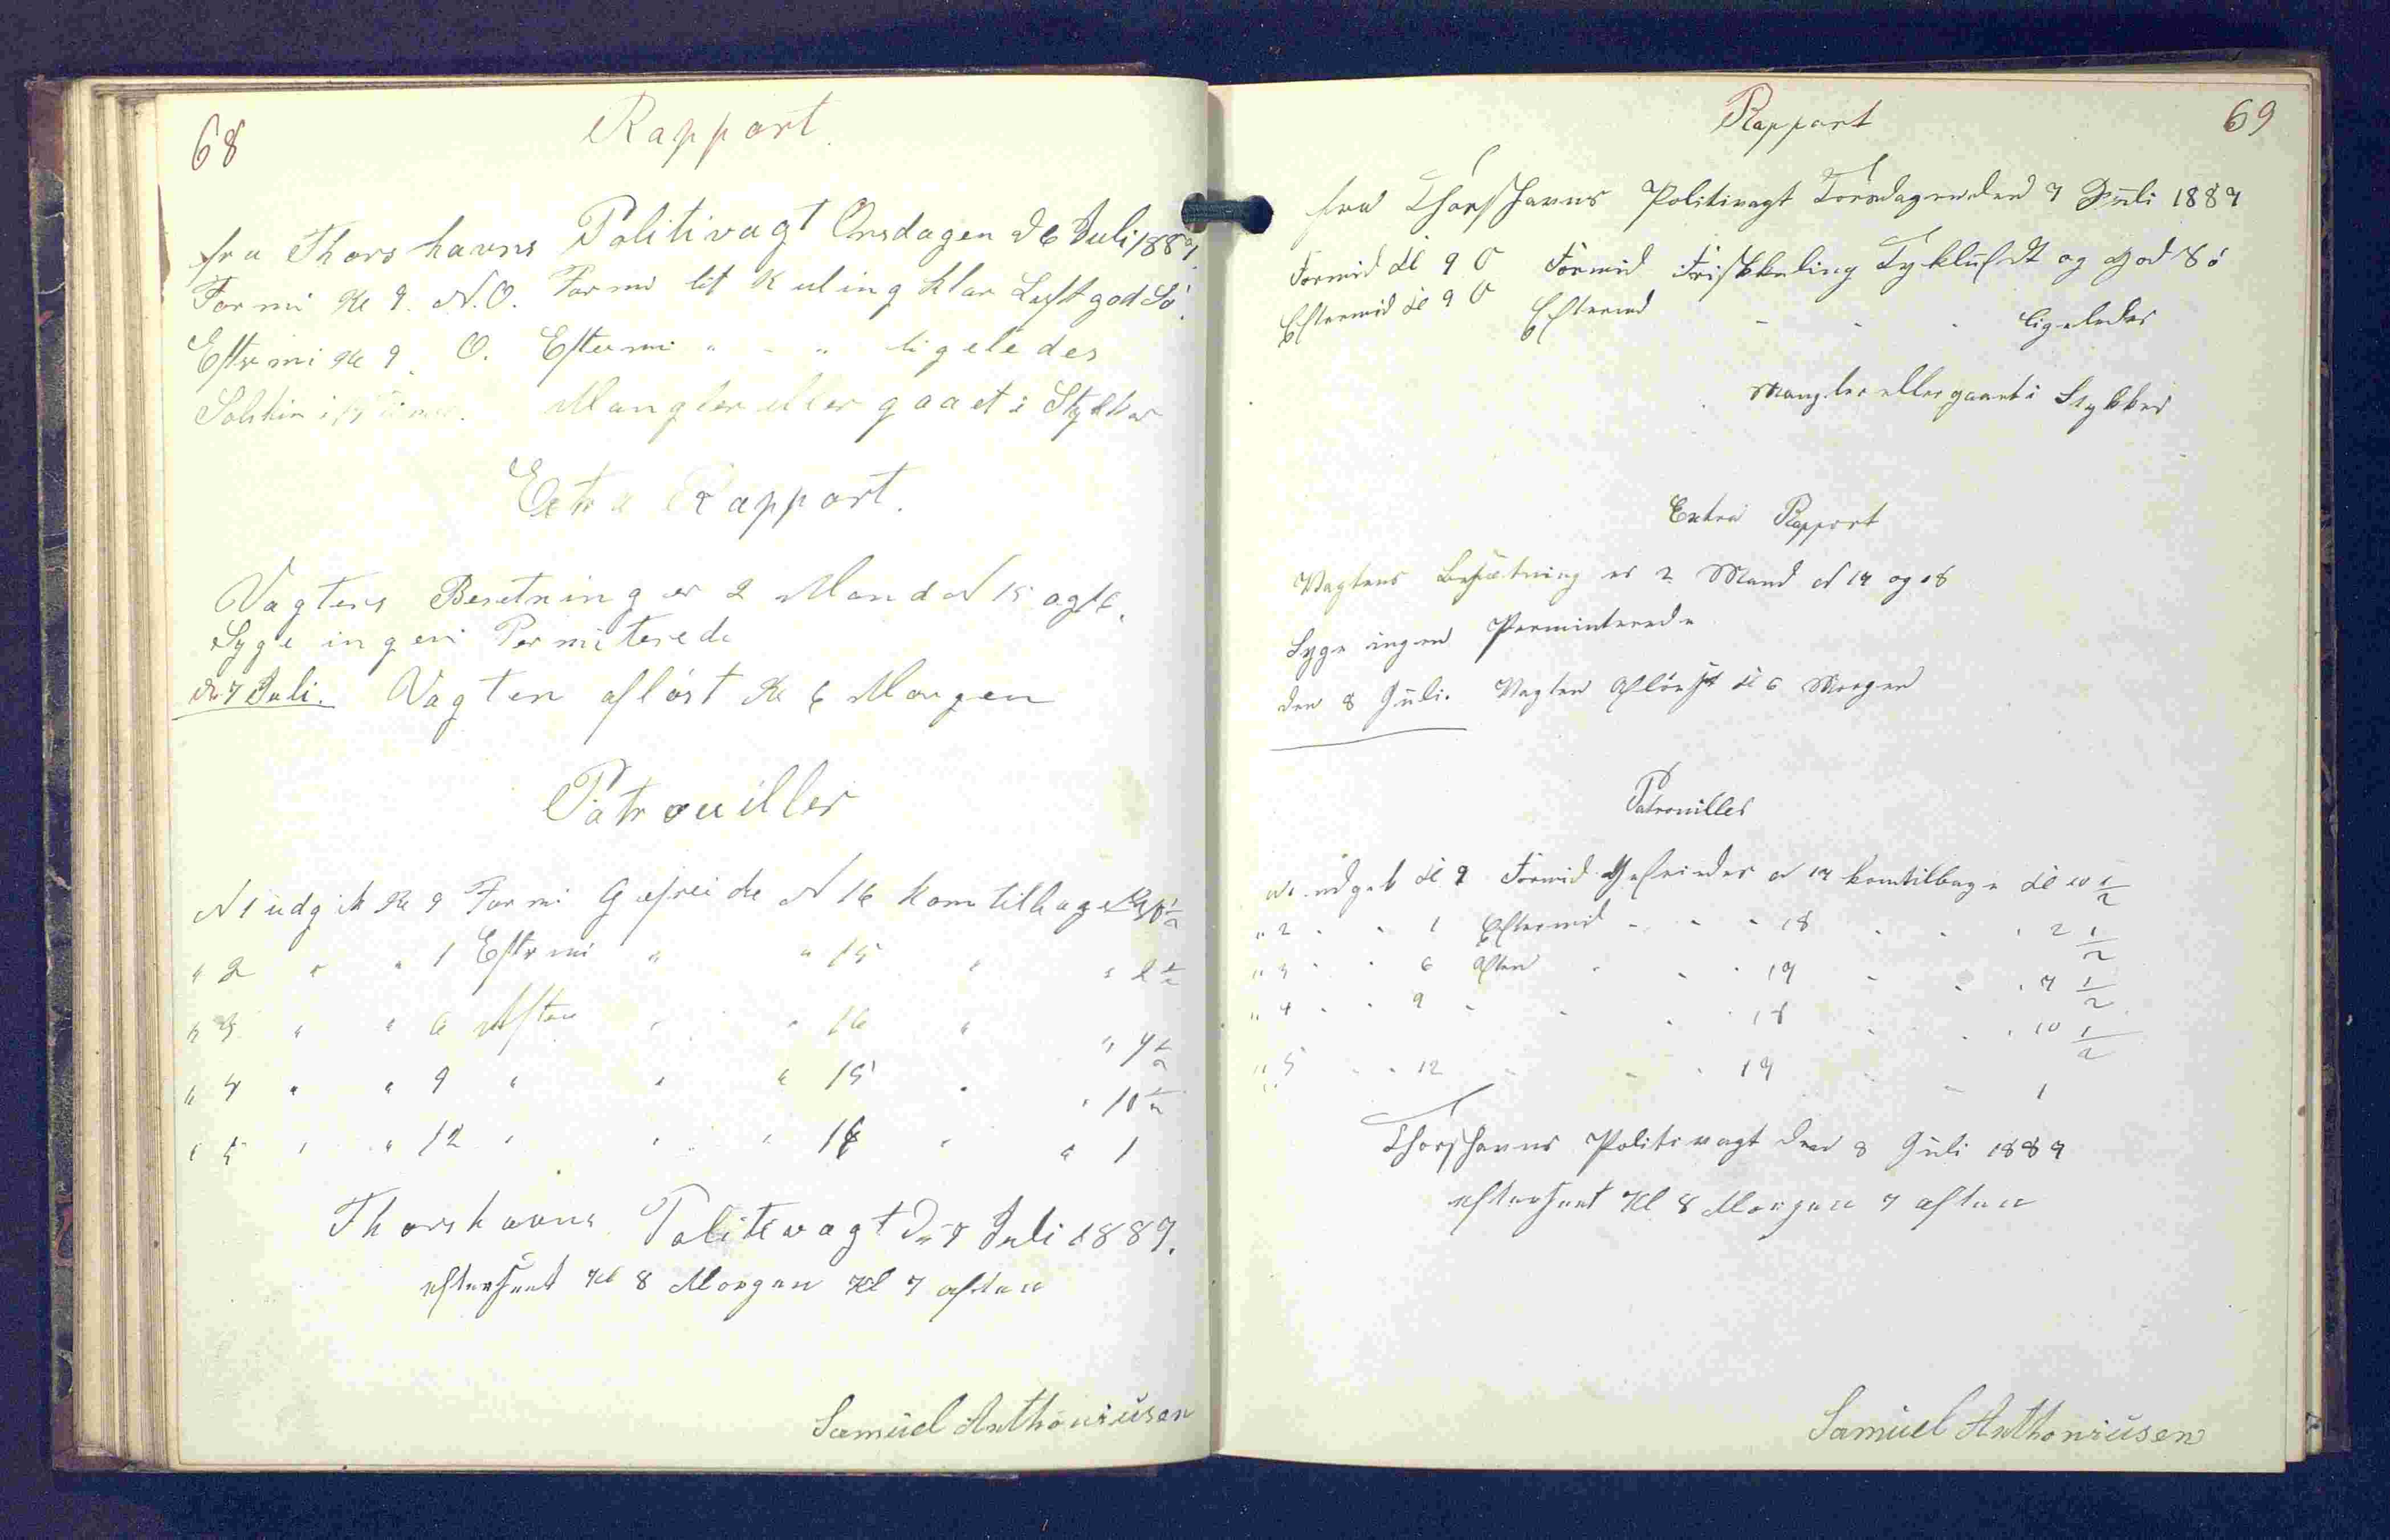 68
Rapport.
fra Thorshavns Politivagt Onsdagen d 6 Juli 1887.
Formi Kl 9. N.O. Formi let Kuling klar Luft god Sö.
Eftermi Kl 9. O. Eftermi " - " ligeledes
Mangler eller gaaet i Stykker
Extra Rapport.
Vagtens Besetning er 2 Mand N 15 og 16.
Syge ingen Permiterede
d 7 Juli. Vagten aflöst Kl 6 Morgen
Patrouiller
N 1 udgik Kl 9 Formi Gefreide N 16 kom tilbage Kl 10 1/2
" 2 " " 1 Eftermi " " 15 " " 2 1/2
" 3 " " 6 Aften " " 16 " " 7 1/2
" 4 " " 9 " " " 15 " " 10 1/2
" 5 " " 12 " " " 16 " " 1
Thorshavns Politivagt d 7 Juli 1887.
efterseet Kl 8 Morgen Kl 7 aften
Samuel Anthoniusen
69
Rapport
fra Thorshavns Politivagt Torsdagen den 7 Juli 1887
Formid Kl 9 O Formid Frisk Kuling Tyk Luft og god Sö
Eftermid Kl 9 O Eftermd - - - ligeledes
Mangler eller gaaet i Stykker
Extra Rapport
Vagtens Besætning er 2 Mand N 17 og 18
Syge ingen Perminterede
den 8 Juli. Vagten Aflöst Kl 6 Morgen
Patrouiller
N 1 udgik Kl 9 Formid Gefreider N 17 kom tilbage Kl 10 1/2
" 2 - - 1 Eftermid - - - 18 - - - 2 1/2
" 3 - - 6 Aften - - - 17 - - - 7 1/2
" 4 - - 9 - - - - 18 - - - 10 1/2
" 5 - - 12 - - - 17 - - 1
Thorshavns Politivagt den 8 Juli 1887
efterseet Kl 8 Morgen 7 aften
Samuel Anthoniusen